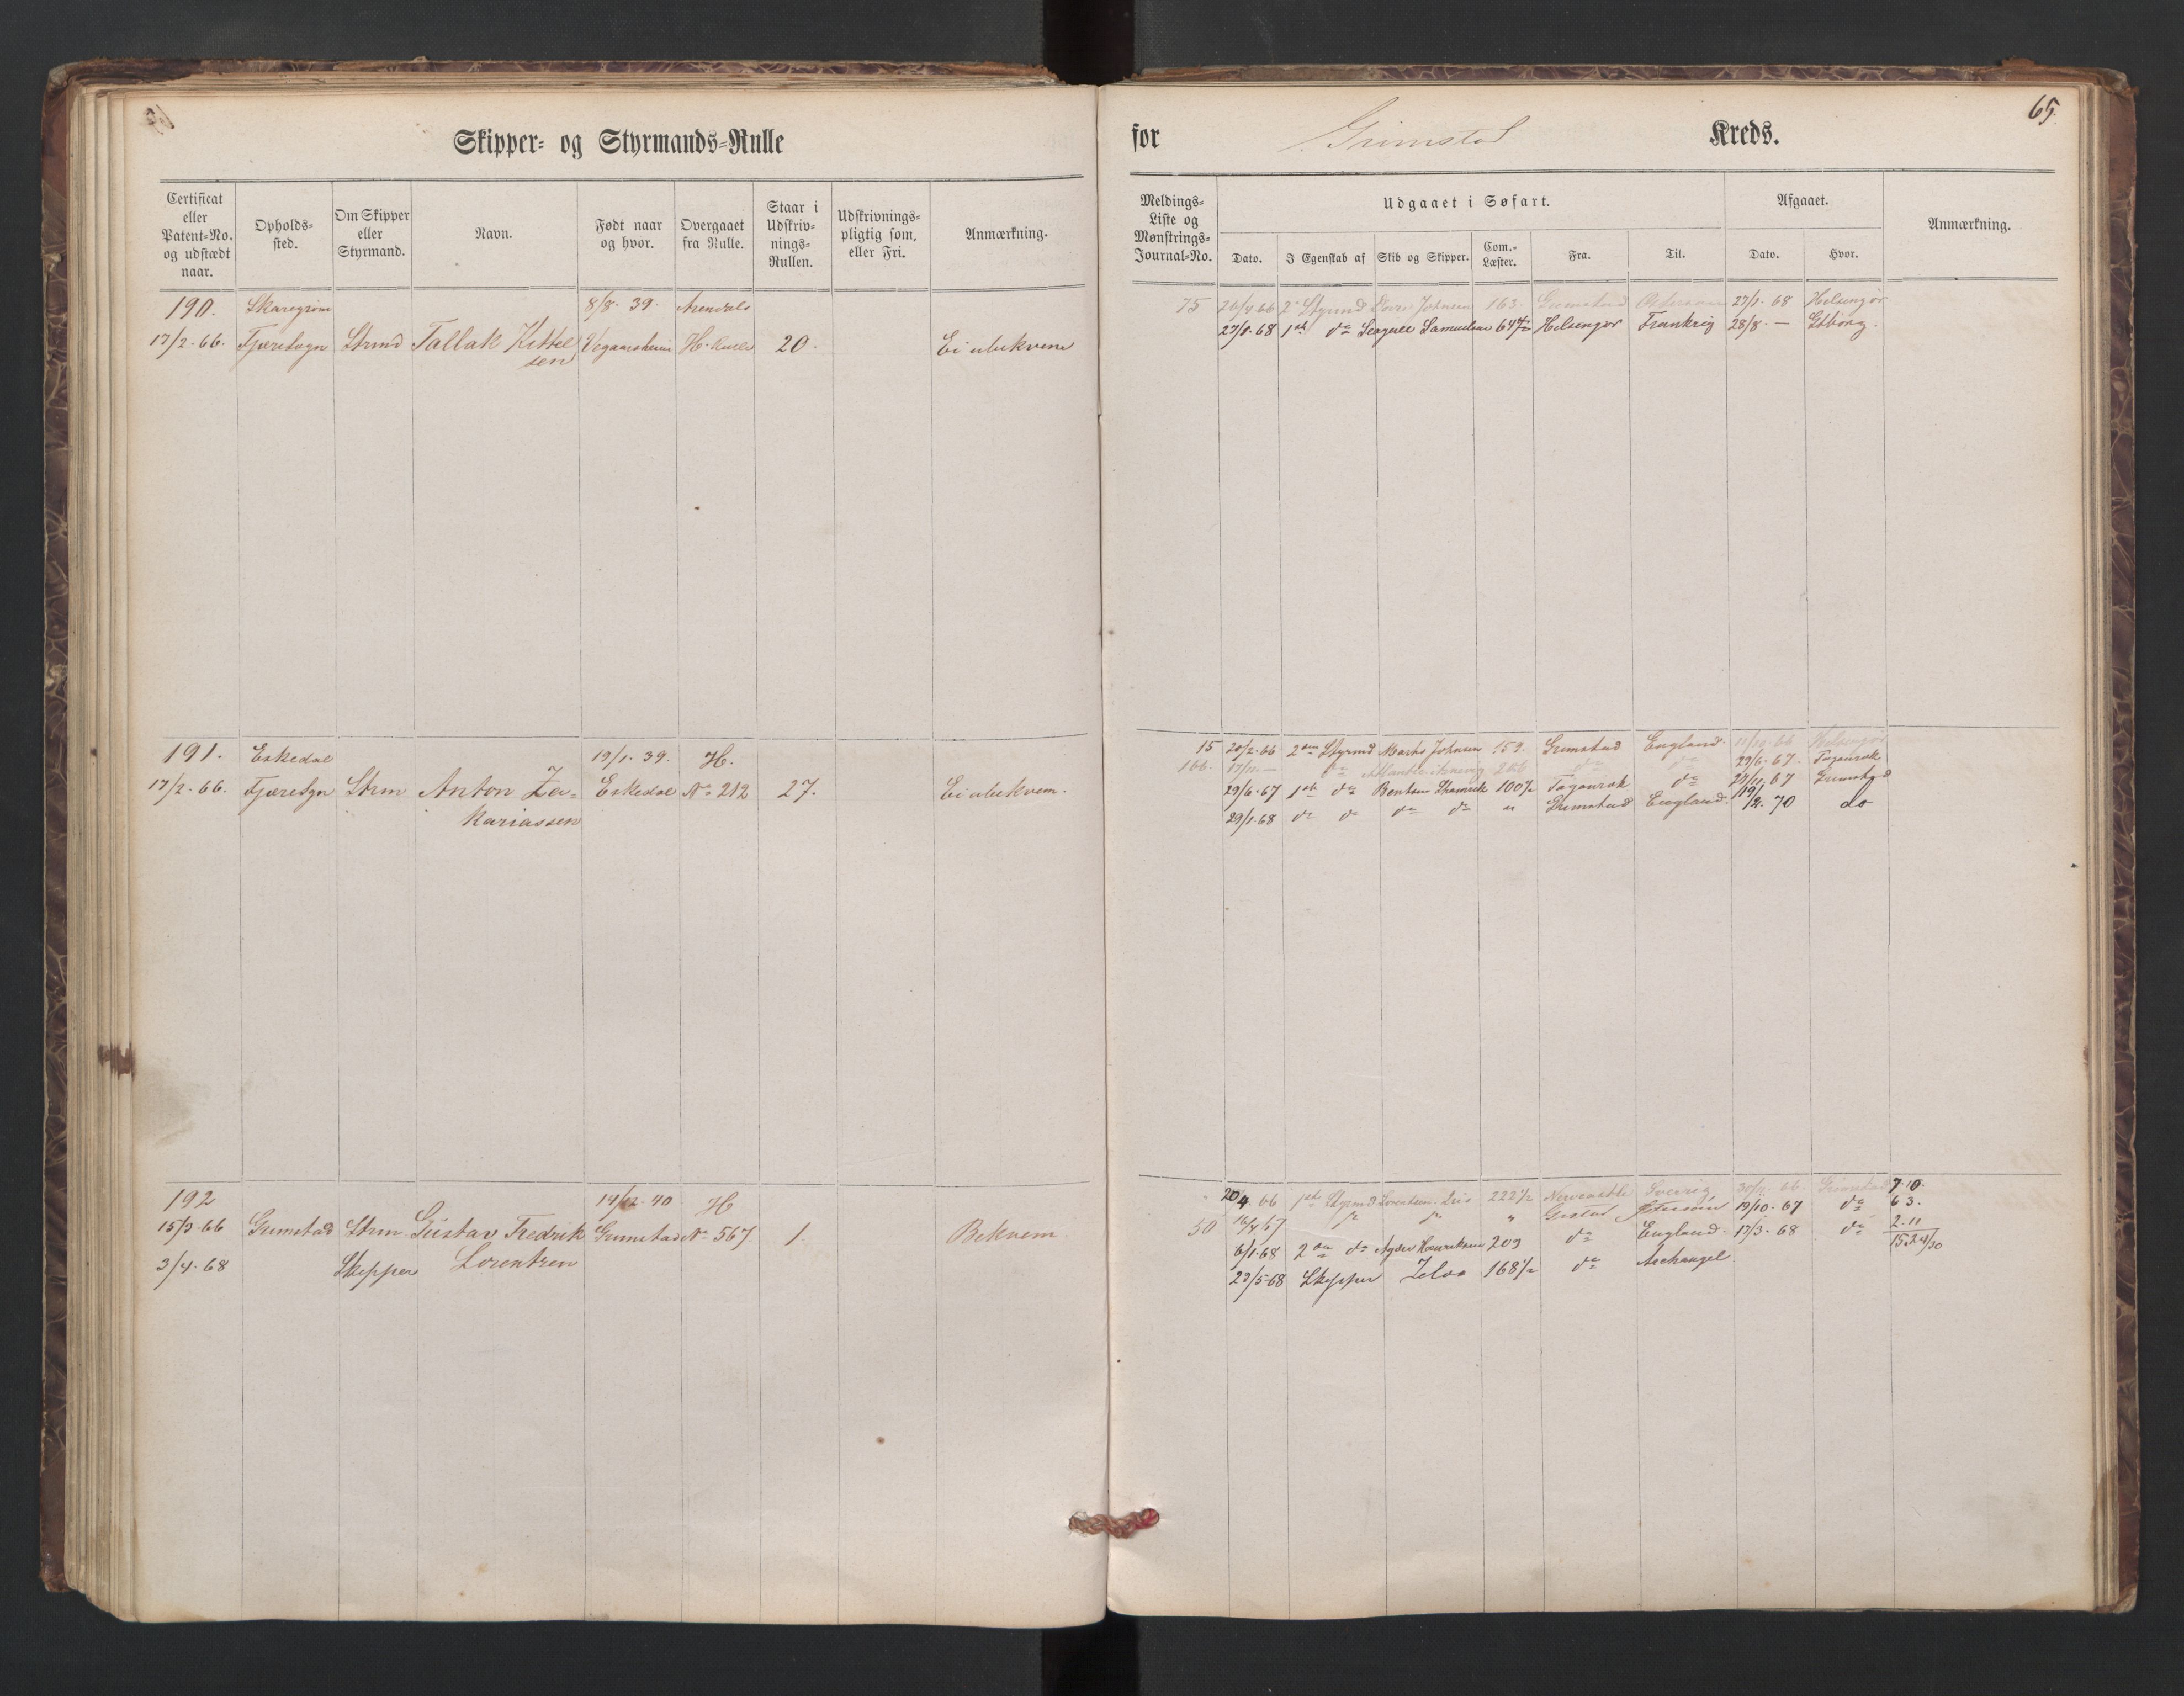 Skipper- og Styrmands-Rulle
Certificat eller Patent-No. og udstædt naar.
Opholds-sted.
Om Skipper eller Styrmand.
Navn.
Født naar og hvor.
Overgaaet fra Rulle.
Staar i Udskriv-nings-Rullen.
Udskrivnings-pligtig som, eller Fri.
Anmærkning.
190. Skaregrøm 8/8. 39. Arendals
17/2. 66. Fjæresogn Strmd Tallak Kittel Vegaarsheim H. Rulle 20. Ei ubekvem
sen
191. Eskedal 19/1. 39. H.
17/2. 66. Fjæresgn Strm Anton Za- Eskedal No 212 27. Ei ubekvem.
kariassen
192 14/12. 40 H
15/3 66 Grimstad Strm Gustav Fredrik Grimstad No 567. 1. Bekvem
3/4. 68 Skipper Lorentzen
for Grimstad Kreds.
65.
Meldings-Liste og Mønstrings-Journal-No.
Udgaaet i Søfart.
Afgaaet.
Anmærkning.
Dato.
I Egenskab af
Skib og Skipper.
Com.-Læster.
Fra.
Til.
Dato.
Hvor.
75 20/4 66 2 Styrmd Johnsen 163. Grimstad 27/1. 68 Helsingør
27/1. 68 1ste do Seagull Samuelsen 64 1/2 Helsingør Frankrig 28/8. — Gtborg.
15 20/2. 66 2den Styrmd Johnsen 159. Grimstad England. 66 Helsingør
166. 17/11. — do Atlantic do do 29/6. 67. Taganrok
29/6. 67 1ste do Bentsen 100 1/2 Taganrok do 24/11. 67 Grimstad
29/1. 68 do do do do " Grimstad England. 19/2. 70 do
20/4 66 1ste Styrmd Lorentzen 222 1/2 Newcastle Sverig 66 Grimstad 7. 10.
50 16/4 67 do do " Grstad 19/10. 67 do 6 3.
6/1. 68 2den do Agder Henriksen 209 do England 17/3. 68 do 2. 11
15. 24/30
23/5 68 Skipper Zelva 168 1/2 do Archangel